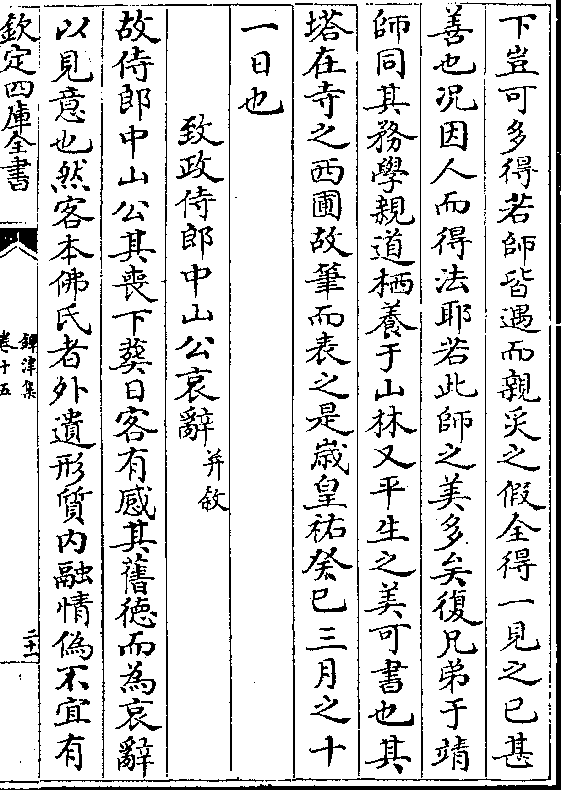 下豈可多得若師皆遇而親炙之假令得一見之已甚
善也况因人而得法耶若此師之美多矣復兄弟于靖
師同其務學親道栖養于山林又平生之美可書也其
塔在寺之西圃故筆而表之是歳皇祐癸巳三月之十
一日也
致政侍郎中山公哀辭并叙
故侍郎中山公其喪下葬日客有感其舊徳而為哀辭
以見意也然客本佛氏者外遺形質内融情偽不宜有
欽定四庫全書
鐔津集
卷十五
二十一